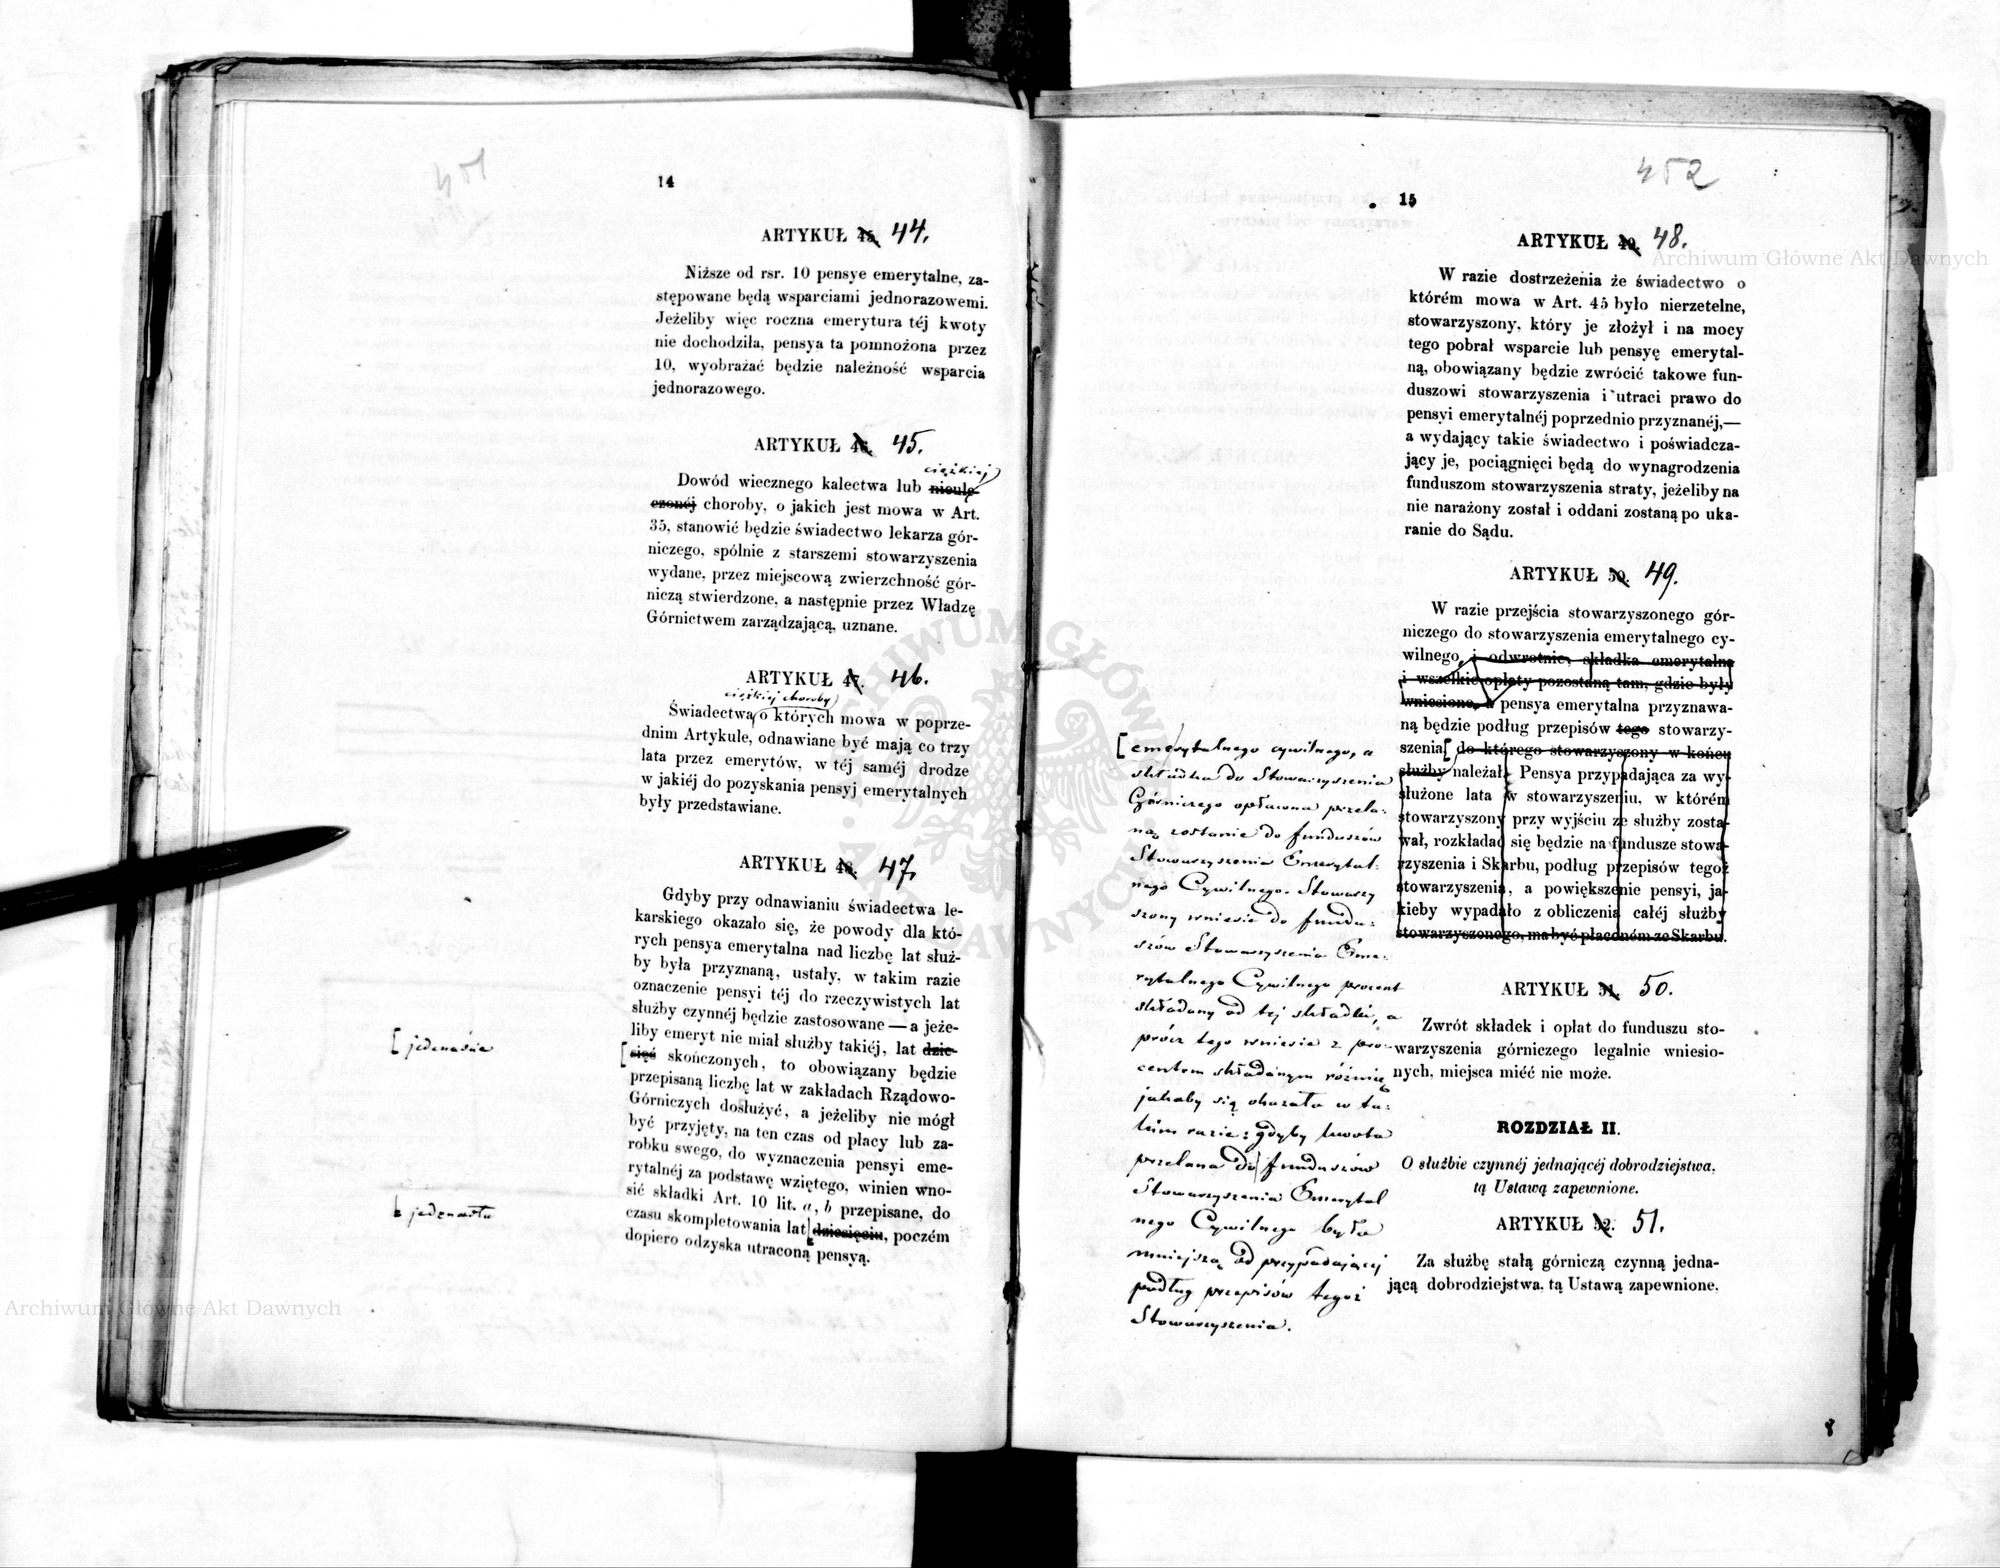 451
14
ARTYKUŁ 45. 44.
Niższe od rsr. 10 pensye emerytalne, za-
stępowane będą wsparciami jednorazowemi.
Jeżeliby więc roczna emerytura téj kwoty
nie dochodziła, pensya ta pomnożona przez
10, wyobrażać będzie należność wsparcia
jednorazowego.
ARTYKUŁ 46. 45.
ciężkiej
Dowód wiecznego kalectwa lub nieule-
czonéj choroby, o jakich jest mowa w Art.
35, stanowić będzie świadectwo lekarza gór-
niczego, spólnie z starszemi stowarzyszenia
wydane, przez miejscową zwierzchność gór-
niczą stwierdzone, a następnie przez Władzę
Górnictwem zarządzającą, uznane.
ARTYKUŁ 47. 46.
ciężkiej choroby
Świadectwa o których mowa w poprze-
dnim Artykule, odnawiane być mają co trzy
lata przez emerytów, w téj saméj drodze
w jakiéj do pozyskania pensyj emerytalnych
były przedstawiane.
ARTYKUŁ 48. 47.
Gdyby przy odnawianiu świadectwa le-
karskiego okazało się, że powody dla któ-
rych pensya emerytalna nad liczbę lat służ-
by była przyznaną, ustały, w takim razie
oznaczenie pensyi téj do rzeczywistych lat
służby czynnéj będzie zastosowane — a jeże-
liby emeryt nie miał służby takiéj, lat dzie-
[ jedenaście
sięć skończonych, to obowiązany będzie
przepisaną liczbę lat w zakładach Rządowo-
Górniczych dosłużyć, a jeżeliby nie mógł
być przyjęty, na ten czas od płacy lub za-
robku swego, do wyznaczenia pensyi eme-
rytalnéj za podstawę wziętego, winien wno-
sić składki Art. 10 lit. a, b przepisane, do
czasu skompletowania lat dziesięciu, poczém
[ jedenastu
dopiero odzyska utraconą pensyą.
452
15
ARTYKUŁ 49. 48.
W razie dostrzeżenia że świadectwo o
którém mowa w Art. 45 było nierzetelne,
stowarzyszony, który je złożył i na mocy
tego pobrał wsparcie lub pensyę emerytal-
ną, obowiązany będzie zwrócić takowe fun-
duszowi stowarzyszenia i utraci prawo do
pensyi emerytalnéj poprzednio przyznanéj,—
a wydający takie świadectwo i poświadcza-
jący je, pociągnięci będą do wynagrodzenia
funduszom stowarzyszenia straty, jeżeliby na
nie narażony został i oddani zostaną po uka-
ranie do Sądu.
ARTYKUŁ 50. 49.
W razie przejścia stowarzyszonego gór-
niczego do stowarzyszenia emerytalnego cy-
wilnego, i odwrotnie, składka emerytalna
i wszelkie opłaty pozostaną tam, gdzie były
wniesione, a pensya emerytalna przyznawa-
ną będzie podług przepisów tego stowarzy-
szenia[ do którego stowarzyszony w końcu
służby należał. Pensya przypadająca za wy-
służone lata w stowarzyszeniu, w którém
stowarzyszony przy wyjściu ze służby zosta-
wał, rozkładać się będzie na fundusze stowa-
rzyszenia i Skarbu, podług przepisów tegoż
stowarzyszenia, a powiększenie pensyi, ja-
kieby wypadało z obliczenia całéj służby
stowarzyszonego, ma być płaconém ze Skarbu.
[ emerytalnego cywilnego, a
składka do Stowarzyszenia
Górniczego opłacona przela-
ną zostanie do funduszów
Stowarzyszenia Emerytal-
nego Cywilnego. Stowarzy
szony wniesie do fundu-
szów Stowarzyszenia Eme-
rytalnego Cywilnego procent
składany od tej składki, a
prócz tego wniesie z pro-
centem składanym różnicę
jakaby się okazała w ta-
kim razie: gdyby kwota
przelana do funduszów
Stowarzyszenia Emerytal
nego Cywilnego była
mniejszą od przypadającej
podług przepisów tegoż
Stowarzyszenia.
ARTYKUŁ 51. 50.
Zwrót składek i opłat do funduszu sto-
warzyszenia górniczego legalnie wniesio-
nych, miejsca miéć nie może.
ROZDZIAŁ II.
O służbie czynnéj jednającéj dobrodziejstwa,
tą Ustawą zapewnione.
ARTYKUŁ 52. 51.
Za służbę stałą górniczą czynną jedna-
jącą dobrodziejstwa, tą Ustawą zapewnione,
8
Archiwum Główne Akt Dawnych
Archiwum Główne Akt Dawnych
ARCHIWUM GŁÓWNE AKT DAWNYCH